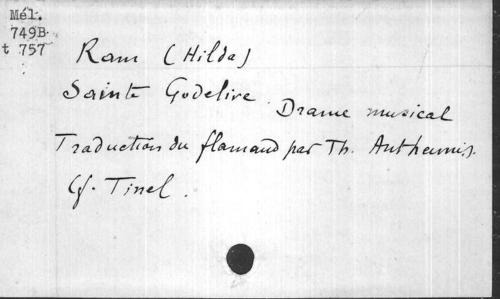 Mél.
749B
t 757
Ram (Hilda)
Sainte Godelive. Drame musical
Traduction du flamand par Th. Antheunis.
Cf. Tinel.